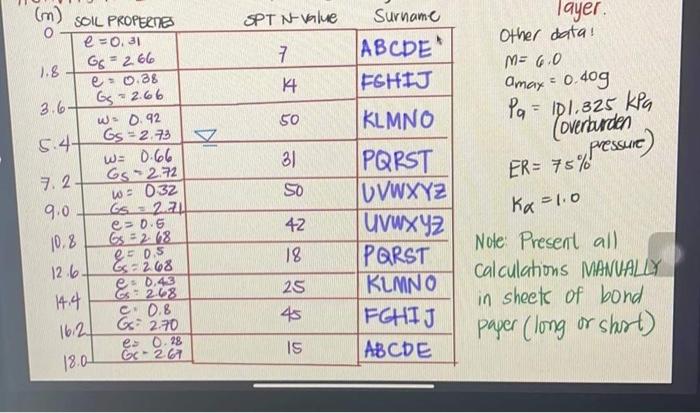 layer.
(m) SOIL PROPERTIES SPT N-value Surname
0
e = 0.31
Gs = 2.66
7
ABCDE
1.8
e = 0.38
Gs = 2.66
14
FGHIJ
3.6
w = 0.92
Gs = 2.73
50
KLMNO
5.4
w = 0.66
Gs = 2.72
31
PQRST
7.2
w = 0.32
Gs = 2.71
50
UVWXYZ
9.0
e = 0.5
Gs = 2.68
42
UVWXYZ
10.8
e = 0.5
Gs = 2.68
18
PQRST
12.6
e = 0.43
Gs = 2.68
25
KLMNO
14.4
e = 0.8
Gs = 2.70
45
FGHIJ
16.2
e = 0.28
Gs = 2.67
15
ABCDE
18.0
Other data:
M = 6.0
amax = 0.40g
Pa = 101.325 kPa
(overburden
pressure)
ER = 75%
Kα = 1.0
Note: Present all
calculations MANUALLY
in sheets of bond
paper (long or short)